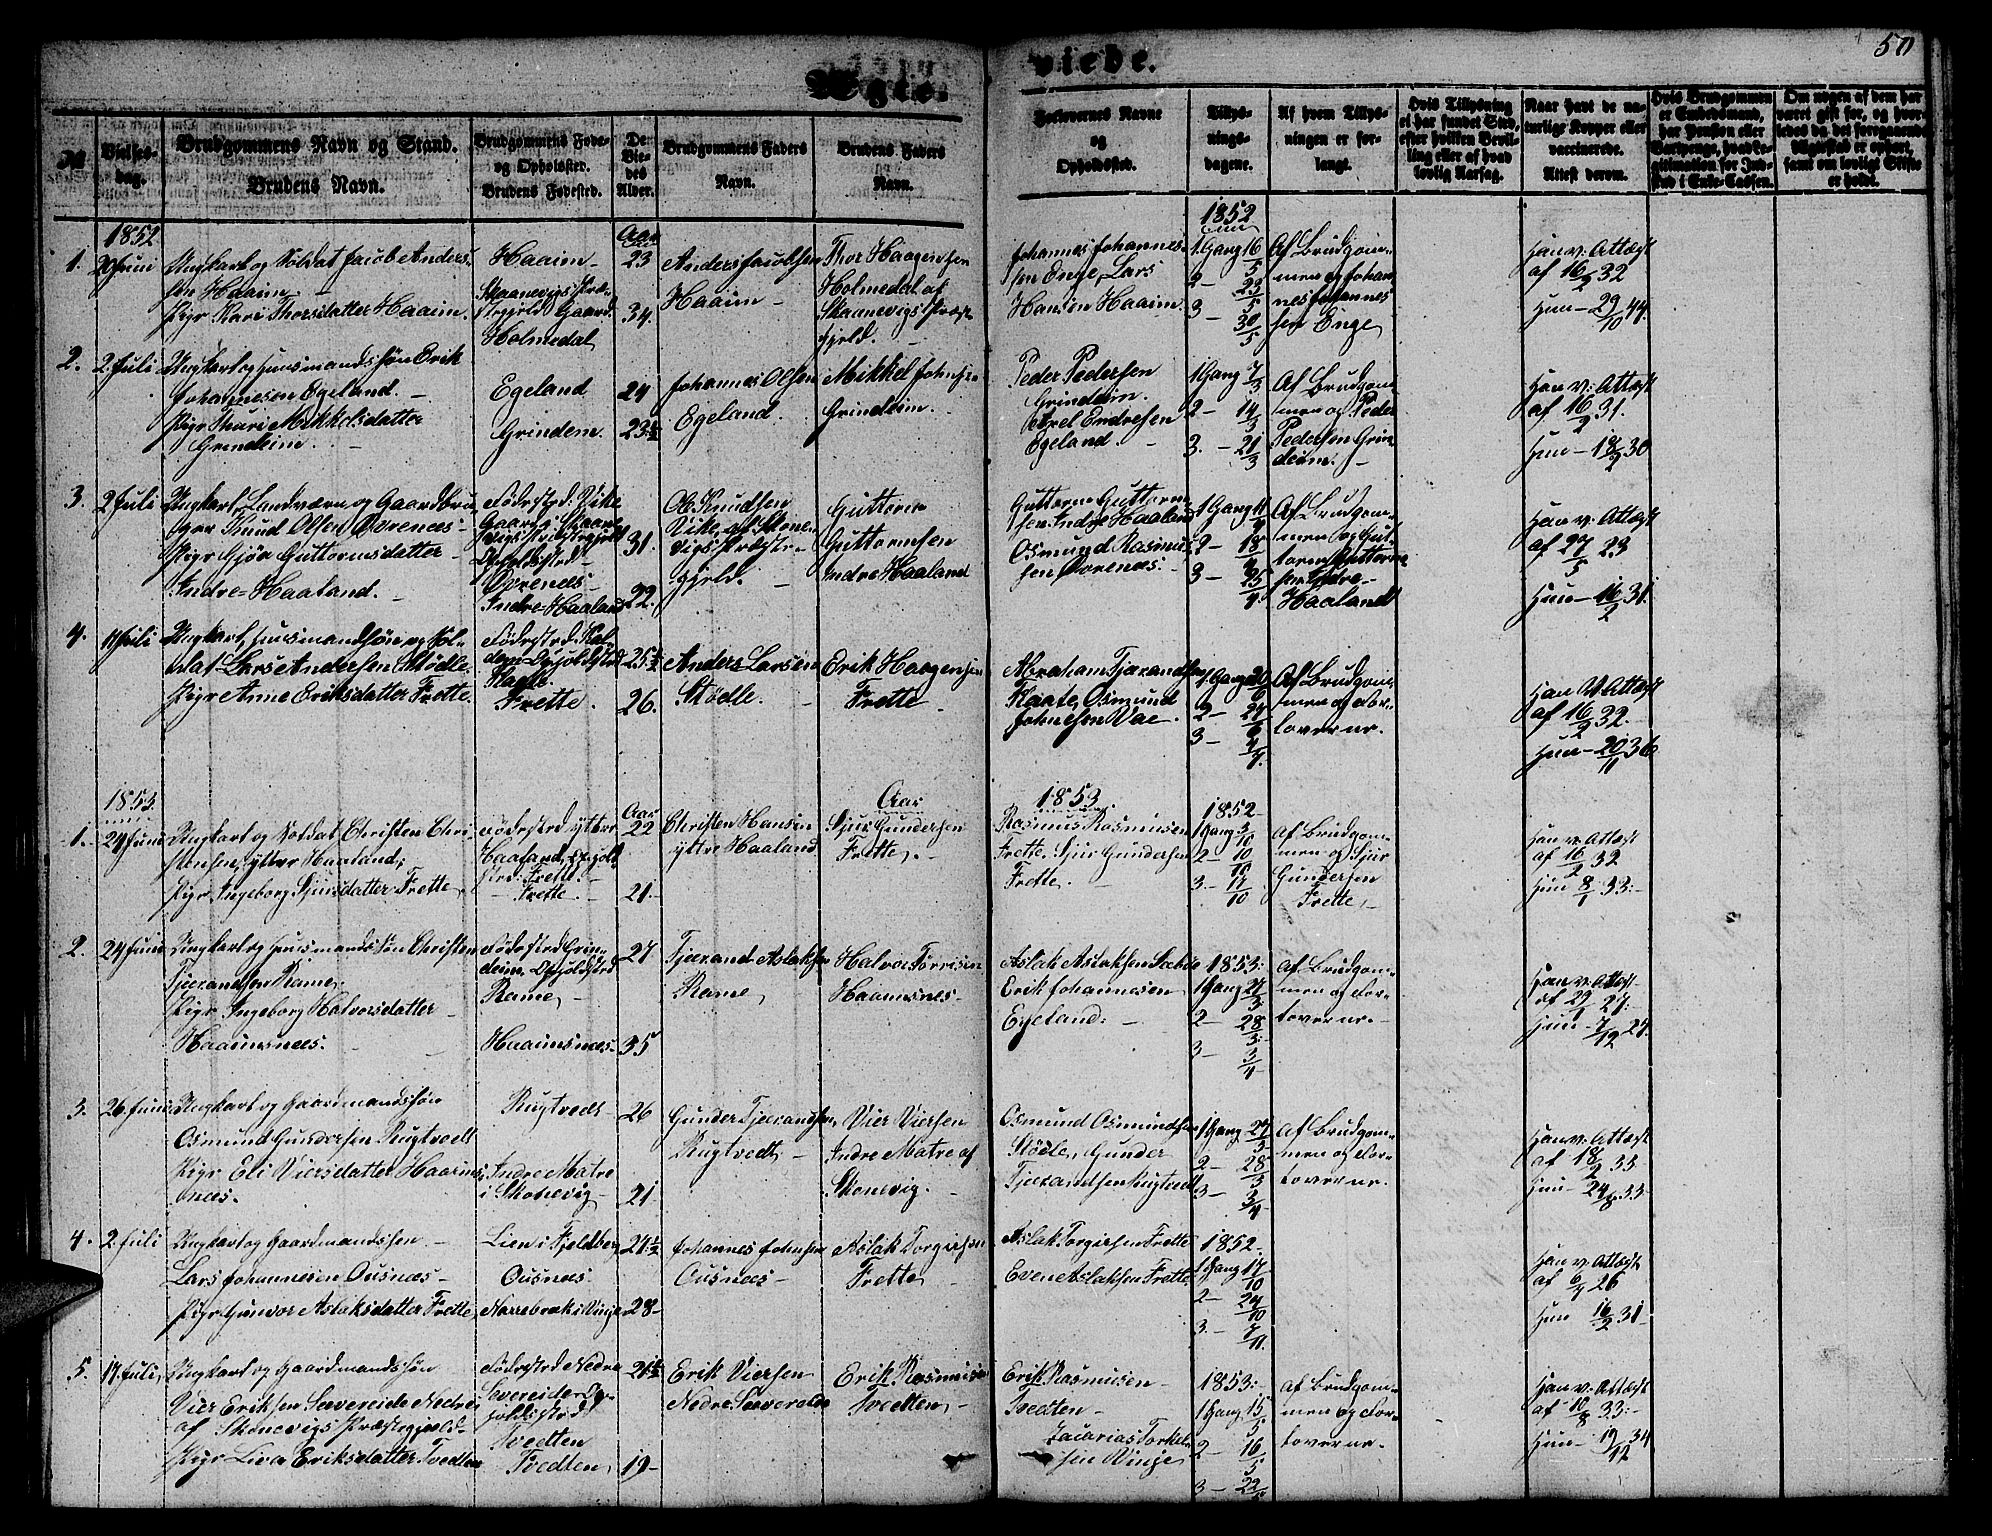 Ægte-
viede.
50
№
Vielses-
dag.
Brudgommens Navn og Stand.
Brudens Navn.
Brudgommens Føde-
og Opholdssted.
Brudens Fødested.
De
Vie-
des
Alder.
Brudgommens Faders
Navn.
Brudens Faders
Navn.
Forlovernes Navne
og
Opholdssted.
Tillys-
nings-
dagene.
Af hvem Tillys-
ningen er for-
langt.
Hvis Tillysning
ei har fundet Sted,
efter hvilken Bevil-
ling eller af hvad
lovlig Aarsag.
Naar havt de na-
turlige Kopper eller
vaccinerede.
Attest derom.
Hvis Brudgommen
er Embedsmand,
har Pension eller
Vartpenge, hvad Le-
gitimation for Ind-
skud i Enke-Cassen.
Om nogen af dem har
været gift før, og hvor-
ledes da det foregaaende
Ægteskab er ophørt,
samt om lovligt Skifte
er holdt.
1852
1.
20 Juni
Ungkarl og Soldat Jacob Anders-
sen Haaim.
Pige Kari Thorsdatter Haaim.
Haaim
Skaanevigs Præ-
stegjeld Gaard
Holmedal
Aar
23
34.
Anders Jacobsen
Haaim
Thor Haagensen
Holmedal af
Skaanevigs Præste-
gjeld.
Johannes Johannes-
sen Enge, Lars
Hansen Haaim
1852
1 Gang 16/5
2 - 23/5
3 - 30/5
Af Brudgom-
men og Johan-
nes Johannes-
sen Enge
Han v: Attest
af 16/2 32
Hun - 29/10 44.
2.
2. Juli
Ungkarl og Huusmandssøn Erik
Johannesen Egeland.
Pige Thuri Mikkelsdatter
Grindeim.
Egeland
Grindem.
24
23½
Johannes Olsen
Egeland
Mikkel Johnsen
Grindeim.
Peder Pedersen
Grindem.
Axel Endresen
Egeland.
1 Gang 7/3
2 - 14/3
3. - 21/3
Af Brudgom-
men og Peder
Pedersen Grin-
deim.
Han v: Attest
af 16/2 31.
Hun - 18/2 30
3.
2 Juli
Ungkarl, Landværn og Gaardbru-
ger Knud Olsen Øvrenæs
Pige Gjør Guttormsdatter
Indre-Haaland.
Fødested: Vike
Gaard i Skaane-
vigs Præstegjeld
Opholdssted
Øvrenæs
Indre-Haaland
31.
22.
Ole Knudsen
Vike af Skone-
vigs Præste-
gjeld.
Guttorm
Guttormsen
Indre Haaland
Guttorm Guttorm-
sen Indre Haaland
Osmund Rasmus-
sen Øvrenæs.
1 Gang 11/4
2 - 18/4
3 - 25/4
Af Brudgom-
men og Gut-
torm Guttorm-
sen Indre-
Haaland
Han v: Attest
af 27/5 23
Hun - 16/2 31.
4.
11 Juli
Ungkarl, Huusmandssøn og Sol-
dat Lars Andersen Stødle
Pige Anne Eriksdatter Frette.
Frette.
25½
26.
Anders Larsen
Stødle.
Erik Haagensen
Frette
Abraham Tjerandsen
Kaate, Osmund
Johnesen Vae.
1. Gang 20/6
2 - 27/6
3 - 4/7
Af Brudgom-
men og For-
loverne.
Han v: Attest
af 16/2 32.
Hun - 20/11 36
1853.
1.
24 Juni
Ungkarl og Soldat Christen Chri-
stensen, yttre Haaland;
Pige Ingeborg Sjursdatter Frette,
Fødested yttre
Haaland, Ophold-
sted: Frette.
Frette.
Aar
22
21.
Christen Hansen
yttre Haaland
Aar
Sjur Gundersen
Frette.
1853.
Rasmus Rasmusen
Frette. Sjur Gundersen
Frette.
1852
1 Gang 3/10
2 - 10/10
3 - 17/10
Af Brudgom-
men og Sjur
Gundersen
Frette,
Han v: Attest
af 16/2 32
Hun 8/1 33:
2.
24 Juni
Ungkarl og Huusmandssøn Christen
Tjerandsen Rame,
Pige Ingeborg Halvorsdatter
Haaimsnæs.
Fødested Grin-
deim, Opholdsted
Rame,
Haaimsnæs.
27
35
Tjerand Aslaksen
Rame,
Halvor Torrisen
Haaimsnes-
Aslak Aslaksen Sabøe
Erik Johannesen
Egeland:
1853:
1 Gang 27/3
2 - 28/3:
3 - 3/4
Af Brudgom-
men og For-
loverne.
Han v: Attest
Hun - 7/12 27.
3.
26 Juni
Ungkarl og Gaardmandssøn
Osmund Gundersen Rugtvedt
Pige Eli Viersdatter Haaims-
næs.
Rugtvedt
Indre Matre
i Skonevig
26
21
Gunder Tjerandsen,
Rugtvedt
Vier Viersen
Indre Matre af
Skonevig.
Osmund Osmundsen
Stødle, Gunder
Tjerandsen Rugtvedt
1 Gang 27/3
2 - 28/3
3 - 3/4
Af Brudgom-
men og For-
loverne.
Han v: Attest
af 18/2 35
Hun - 24/8 33
4.
2. Juli
Ungkarl og Gaardmandssøn
Lars Johannesen Ousnæs
Pige Gunvor Aslaksdatter Frette
Lien i Fjeldberg
Ousnæs
28
Johannes Johnsen
Ousnæs
Aslak Torgiersen
Frette
Aslak Torgiersen Frette
Even Aslaksen Frette
1852
1 Gang 17/10
2 - 24/10
3 - 7/11.
Han v: Attest
Hun 16/2 31
5.
17 Juli,
Ungkarl og Gaardmandssøn
Vier Eriksen Sævereide Nedre
af Skonevigs Præstegjeld
Pige Liva Eriksdatter Tvedten
Fødested Nedre
Sævereide Op-
holdssted
Tvedten
Tvedten
21½
19
Erik Viersen
Nedre Sævereide
Erik Rasmusen
Tvedten
Erik Rasmusen
Tvedten
Zacarias Torkel-
sen Vinje,
1853:
1 Gang 15/5
2 - 16/5
3 - 22/5
Af Brudgom-
men og For-
loverne.
Han v: Attest
af 10/8 33: